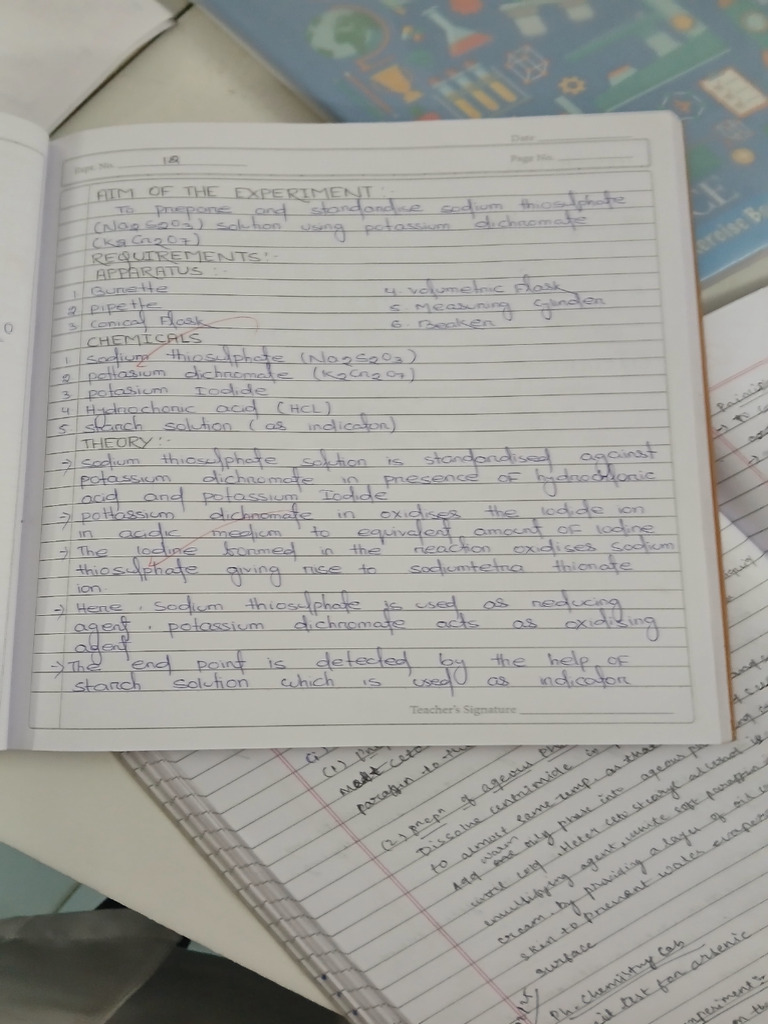 Date
Expt. No. 12
Page No.
AIM OF THE EXPERIMENT :-
To prepare and standardise sodium thiosulphate
(Na2S2O3) solution using potassium dichromate
(K2Cr2O7)
REQUIREMENTS:-
APPARATUS :-
1 Burette
2 pipette
3 Conical Flask
4. volumetric Flask
5. Measuring Cylinder
6. Beaker
CHEMICALS
1 sodium thiosulphate (Na2S2O3)
2 pottasium dichromate (K2Cr2O7)
3 potasium Iodide
4 Hydrochoric acid (HCL)
5 starch solution (as indicator)
THEORY :-
→ sodium thiosulphate solution is standardised against
potassium dichromate in presence of hydrochloric
acid and potassium Iodide
→ pottassium dichromate in oxidises the iodide ion
in acidic medium to equivalent amount of iodine
→ The Iodine formed in the reaction oxidises sodium
thiosulphate giving rise to sodiumtetra thionate
ion
→ Here, sodium thiosulphate is used as reducing
agent, potassium dichromate acts as oxidising
agent
→ The end point is detected by the help of
starch solution which is used as indicator
Teacher's Signature
CE
ercise Bo
(1)
paraffin to the
(2) prepn of aqeous ph
Dissolve centrimide in
to almost same temp. as that
Add oily phase into aqeous p
until cold
emulsifying agent, white soft paraffin
cream by providing a layer of oil
skin to prevent water evapor
surface
Ph. Chemistry Lab
test for arsenic
experiment:-